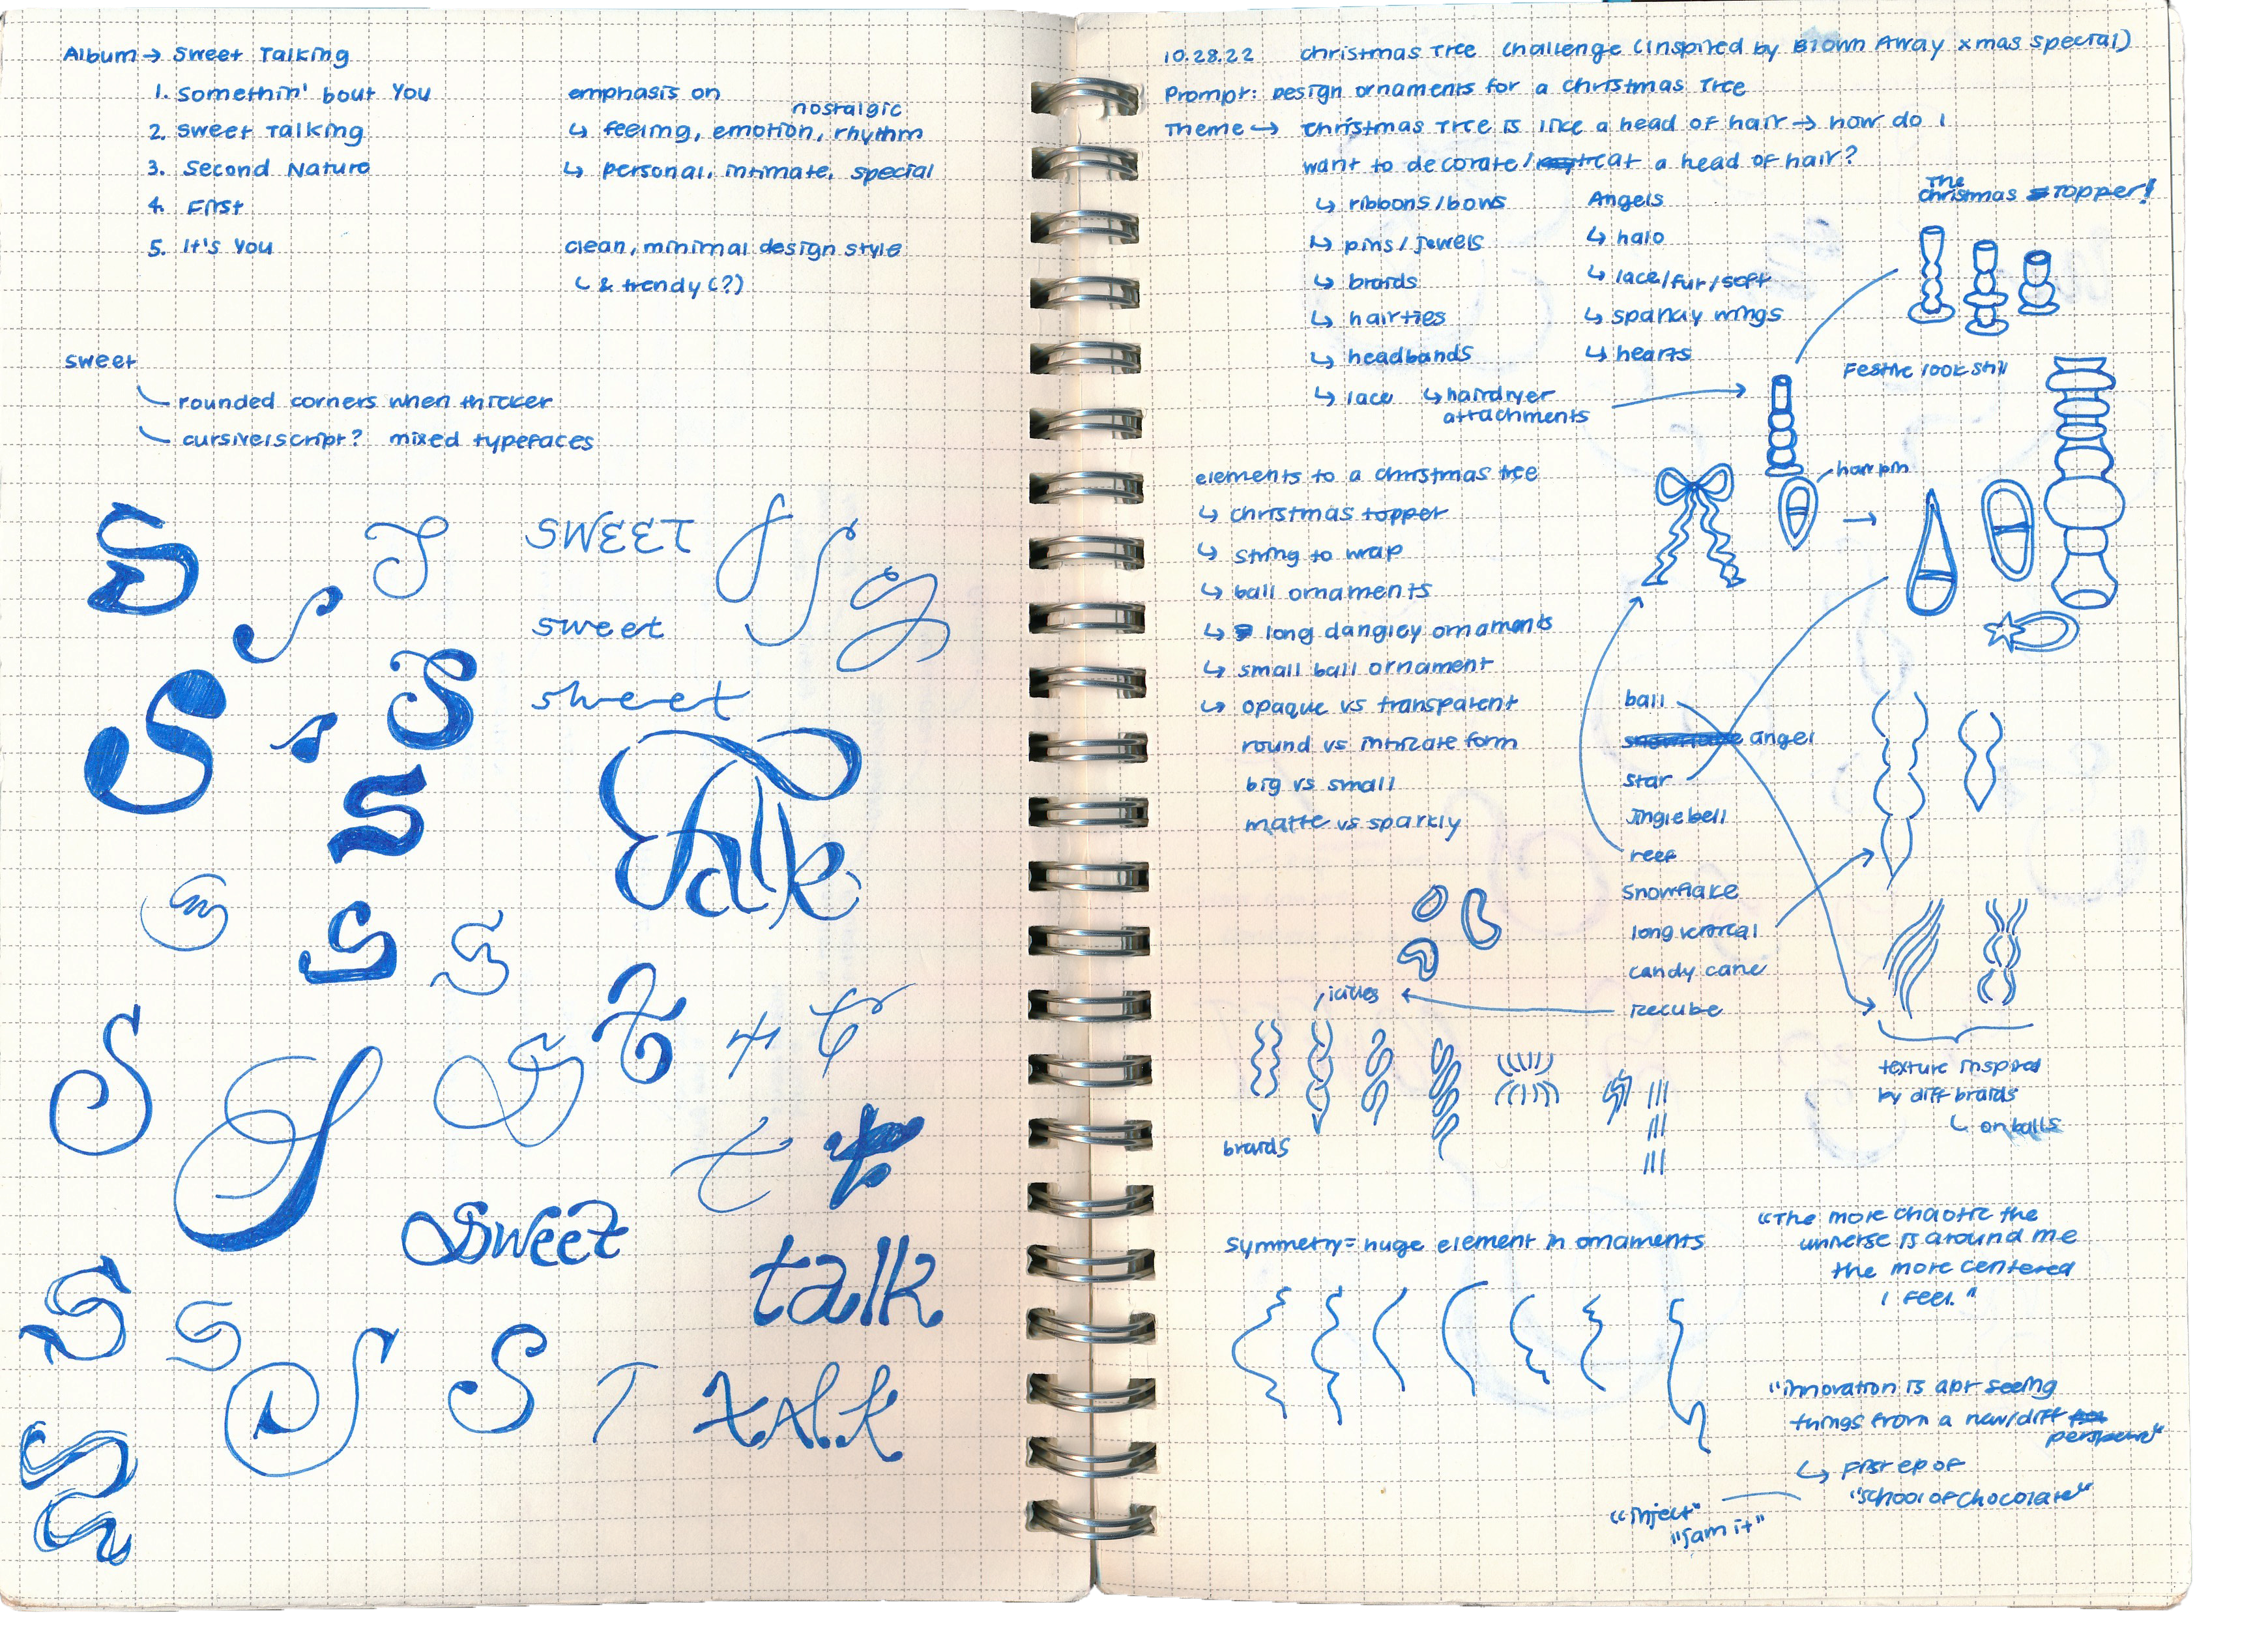 Album → Sweet Talking
1. Somethin' bout You
2. Sweet Talking
3. Second Nature
4. First
5. It's You
emphasis on
nostalgic
↳ feeling, emotion, rhythm
↳ personal, intimate, special
clean, minimal design style
↳ & trendy (?)
sweet
rounded corners when thicker
cursive/script? mixed typefaces
S
SWEET
sweet
sweet
Talk
Sweet
talk
talk
10.28.22 Christmas Tree Challenge (inspired by Blown Away xmas special)
Prompt: Design ornaments for a Christmas Tree
Theme → Christmas Tree is like a head of hair → how do I
want to decorate/treat a head of hair?
↳ ribbons/bows
↳ pins/jewels
↳ braids
↳ hairties
↳ headbands
↳ lace ↳ hairdryer
attachments
Angels
↳ halo
↳ lace/fur/soft
↳ spanky wings
↳ hearts
The
Christmas Topper!
Festive look still
hairpin
elements to a christmas tree
↳ christmas topper
↳ string to wrap
↳ ball ornaments
↳ long dangley ornaments
↳ small ball ornament
↳ opaque vs transparent
round vs intricate form
big vs small
matte vs sparkly
ball
snowflake angel
star
Jingle bell
reef
Snowflake
long vertical
candy cane
icecube
icicles
braids
texture inspired
by diff braids
↳ on balls
Symmetry = huge element in ornaments
"The more chaotic the
universe is around me
the more centered
I feel."
"innovation is abt seeing
things from a new/diff
perspective"
↳ First ep of
"School of Chocolate"
"inject"
"jam it"